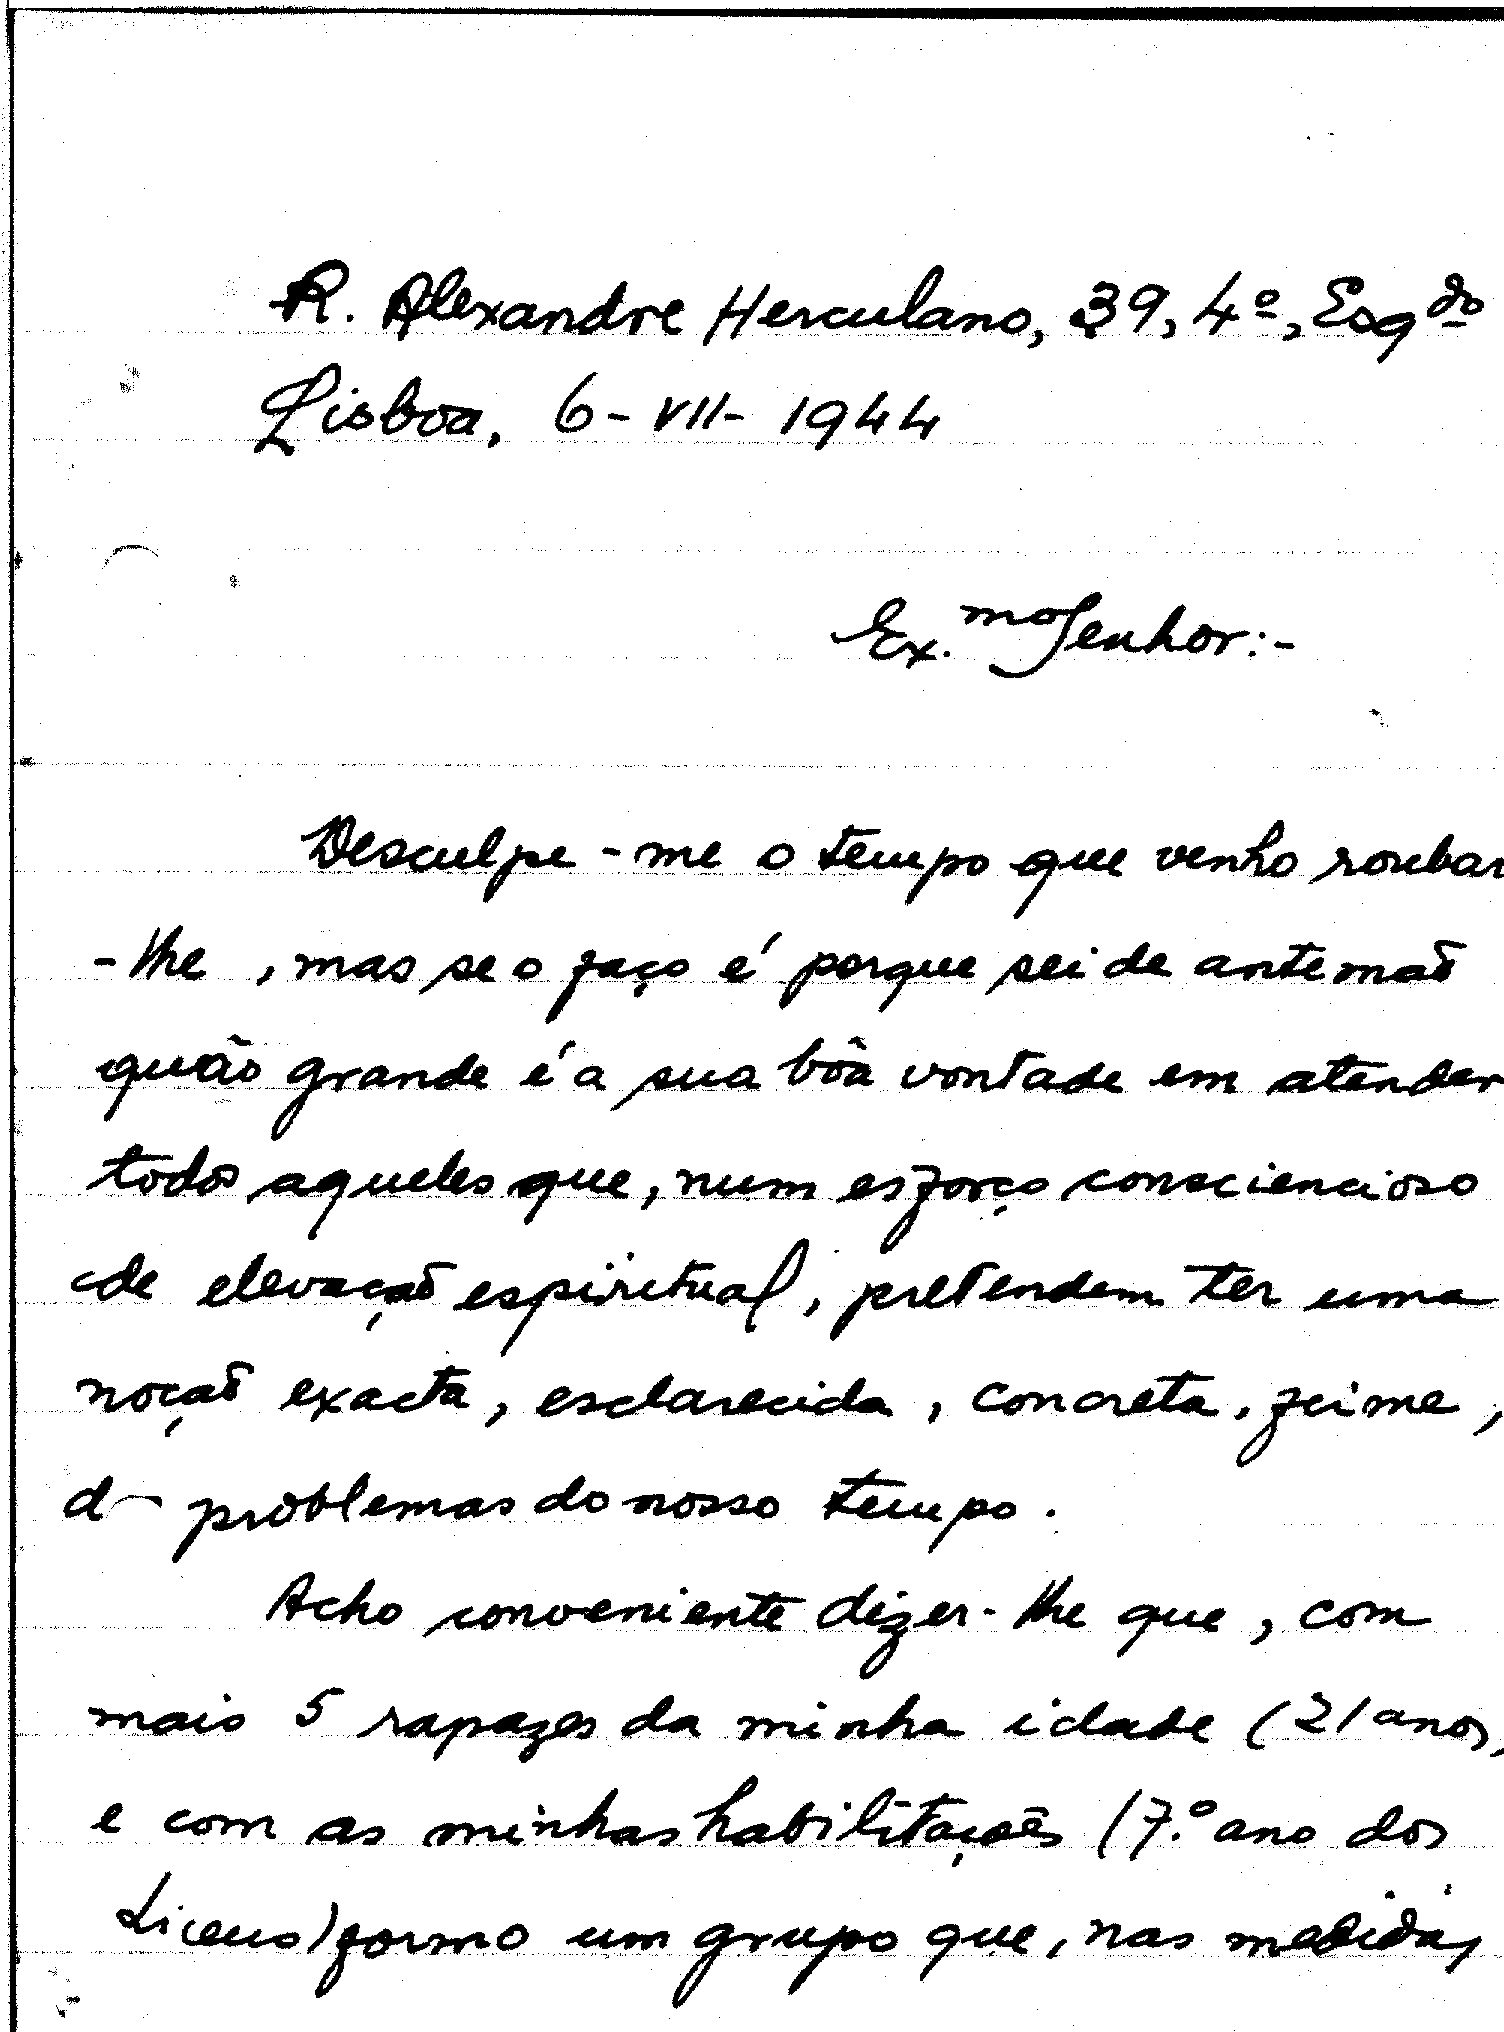 R. Alexandre Herculano, 39, 4º, Esqdo
Lisboa, 6-VII-1944
Ex.mo Senhor:-
Desculpe-me o tempo que venho roubar
-lhe, mas se o faço é porque sei de antemaõ
quão grande é a sua bôa vontade em atender
todos aqueles que, num esforço consciencioso
de elevaçaõ espiritual, pretendem ter uma
noçaõ exacta, esclarecida, concreta, firme,
d problemas do nosso tempo.
Acho conveniente dizer-lhe que, com
mais 5 rapazes da minha idade (21 anos)
e com as minhas habilitaçoẽs (7.º ano dos
Liceus) formo um grupo que, nas medidas